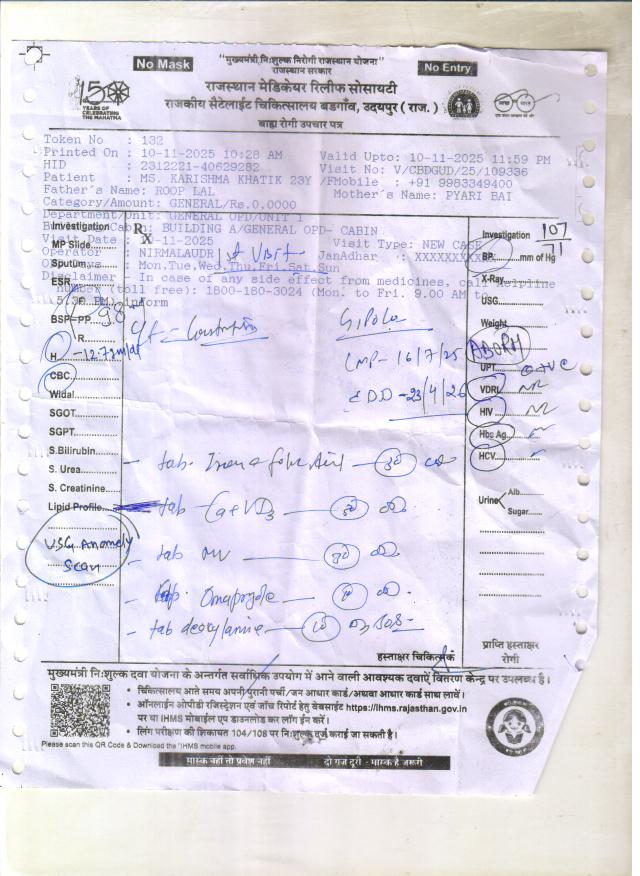 No Mask
"मुख्यमंत्री निःशुल्क निरोगी राजस्थान योजना"
राजस्थान सरकार
No Entry
राजस्थान मेडिकेयर रिलीफ सोसायटी
राजकीय सैटेलाईट चिकित्सालय बडगाँव, उदयपुर ( राज. )
बाह्य रोगी उपचार पत्र
150
YEARS OF
CELEBRATING
THE MAHATMA
Token No : 132
Printed On : 10-11-2025 10:28 AM Valid Upto: 10-11-2025 11:59 PM
HID : 2312221-40629282 Visit No: V/CBDGUD/25/109336
Patient : MS. KARISHMA KHATIK 23Y /F Mobile : +91 9983349400
Father's Name: ROOP LAL Mother's Name: PYARI BAI
Category/Amount: GENERAL/Rs.0.0000
Department/Unit: GENERAL OPD/UNIT 1
BUILDING A/GENERAL OPD- CABIN
Visit Date : -11-2025 Visit Type: NEW CASE
Operator : NIRMALAUDR JanAdhar : XXXXXXXX
Mon,Tue,Wed,Thu,Fri,Sat,Sun
Disclaimer - In case of any side effect from medicines, call helpline
(toll free): 1800-180-3024 (Mon. to Fri. 9.00 AM
inform
Investigation
Rx
MP Slide
Sputum
ESR
BSF-PP 98
R
H 12.7
CBC
Widal
SGOT
SGPT
S.Bilirubin
S. Urea
S. Creatinine
Lipid Profile
USG Anomely
Scan
1st Visit
LMP - 16/7/25
EDD - 23/4/26
- tab. Iron & folic Acid
- tab Ca+VD3
- tab MV
- Omeprazole
- tab doxylamine
Investigation 107/71
BP mm of Hg
X-Ray
USG
Weight
ABORH
UPT
VDRL NR
HIV NR
Hbs Ag.
HCV
Urine Alb.
Sugar
हस्ताक्षर चिकित्सक
प्राप्ति हस्ताक्षर
रोगी
मुख्यमंत्री निःशुल्क दवा योजना के अन्तर्गत सर्वाधिक उपयोग में आने वाली आवश्यक दवाऐं वितरण केन्द्र पर उपलब्ध है।
• चिकित्सालय आते समय अपनी पुरानी पर्ची/जन आधार कार्ड/अथवा आधार कार्ड साथ लावें।
• ऑनलाईन ओपीडी रजिस्ट्रेशन एवं जाँच रिपोर्ट हेतु वेबसाईट https://ihms.rajasthan.gov.in
पर या IHMS मोबाईल एप डाउनलोड कर लॉग ईन करें।
• लिंग परीक्षण की शिकायत 104/108 पर निःशुल्क दर्ज कराई जा सकती है।
Please scan this QR Code & Download the "IHMS mobile app.
मास्क नहीं तो प्रवेश नहीं दो गज दूरी - मास्क है जरूरी